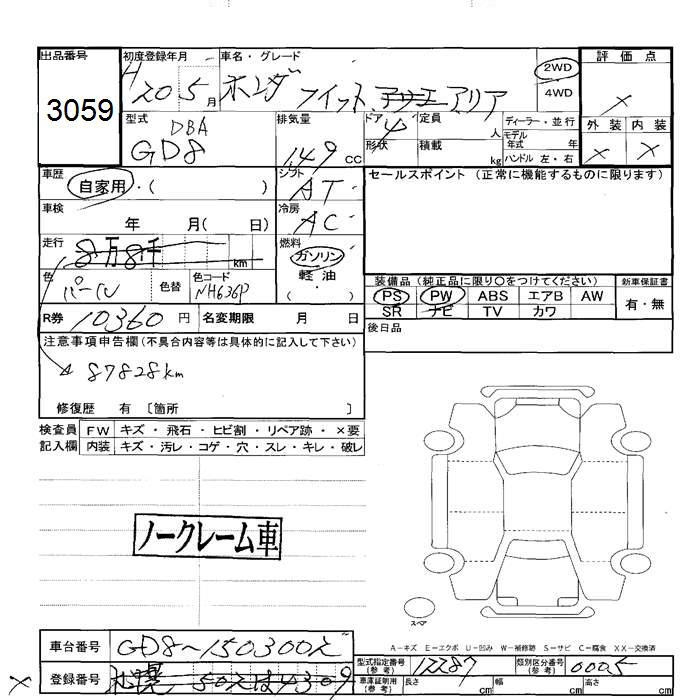 出品番号 初度登録年月 車名・グレード 評価点
3059 H 20 5月 ホンダ フィット アリア 2WD 4WD ×
型式 DBA GD8 排気量 1.49 cc ドア 4 形状 定員 人 積載 kg ディーラー・並行 モデル年式 年 ハンドル 左・右 外装 × 内装 ×
車歴 自家用・( ) シフト AT セールスポイント (正常に機能するものに限ります)
車検 年 月( 日) 冷房 AC
走行 8万8千 km 燃料 ガソリン 軽油 ( )
色 パール 色替 色コード NH636P
装備品(純正品に限り○をつけてください) 新車保証書
PS PW ABS エアB AW 有・無
SR ナビ TV カワ
R券 10360 円 名変期限 月 日 後日品
注意事項申告欄(不具合内容等は具体的に記入して下さい)
87828km
修復歴 有 〔箇所 〕
検査員 FW キズ・飛石・ヒビ割・リペア跡・×要
記入欄 内装 キズ・汚レ・コゲ・穴・スレ・キレ・破レ
ノークレーム車
スペア
A-キズ E-エクボ U-凹み W-補修跡 S-サビ C-腐食 XX-交換済
車台番号 GD8-150300
型式指定番号(参考) 12287 類別区分番号(参考) 0005
× 登録番号 札幌 50 4309
車庫証明用(参考) 長さ cm 幅 cm 高さ cm